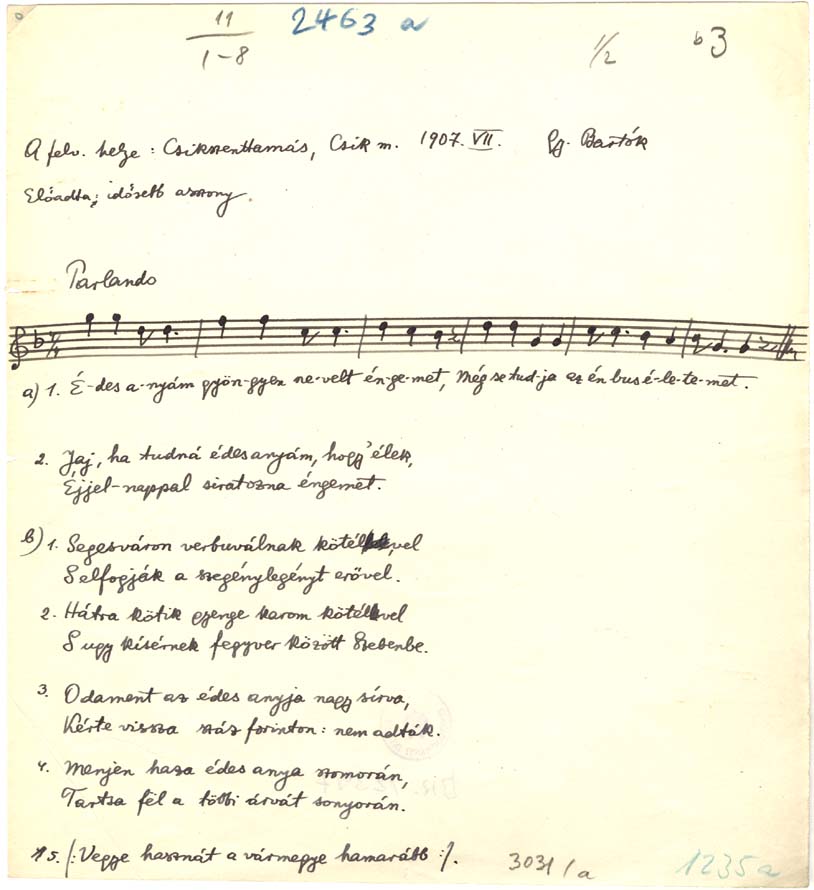 11
1-8
2463 a
1/2
b3
A felv. helye: Csikszenttamás, Csik m. 1907. VII. Gy. Bartók
Előadta: idősebb asszony.
Parlando
a) 1. É-des a-nyám gyön-gyen ne-velt én-ge-met, Még se tud-ja az én bus é-le-te-met.
2. Jaj, ha tudná édesanyám, hogy' élek,
Éjjel-nappal siratozna éngemet.
b) 1. Segesváron verbuválnak kötéllel,vel
S elfogják a szegénylegényt erővel.
2. Hátra kötik gyenge karom kötélvel
S ugy kísérnek fegyver között Szebenbe.
3. Odament az édes anyja nagy sírva,
Kérte vissza száz forinton: nem adták.
4. Menjen haza édes anya szomorán,
Tartsa fél a többi árvát sonyorán.
5. /: Vegye hasznát a vármegye hamarább :/.
3031/a
1235a